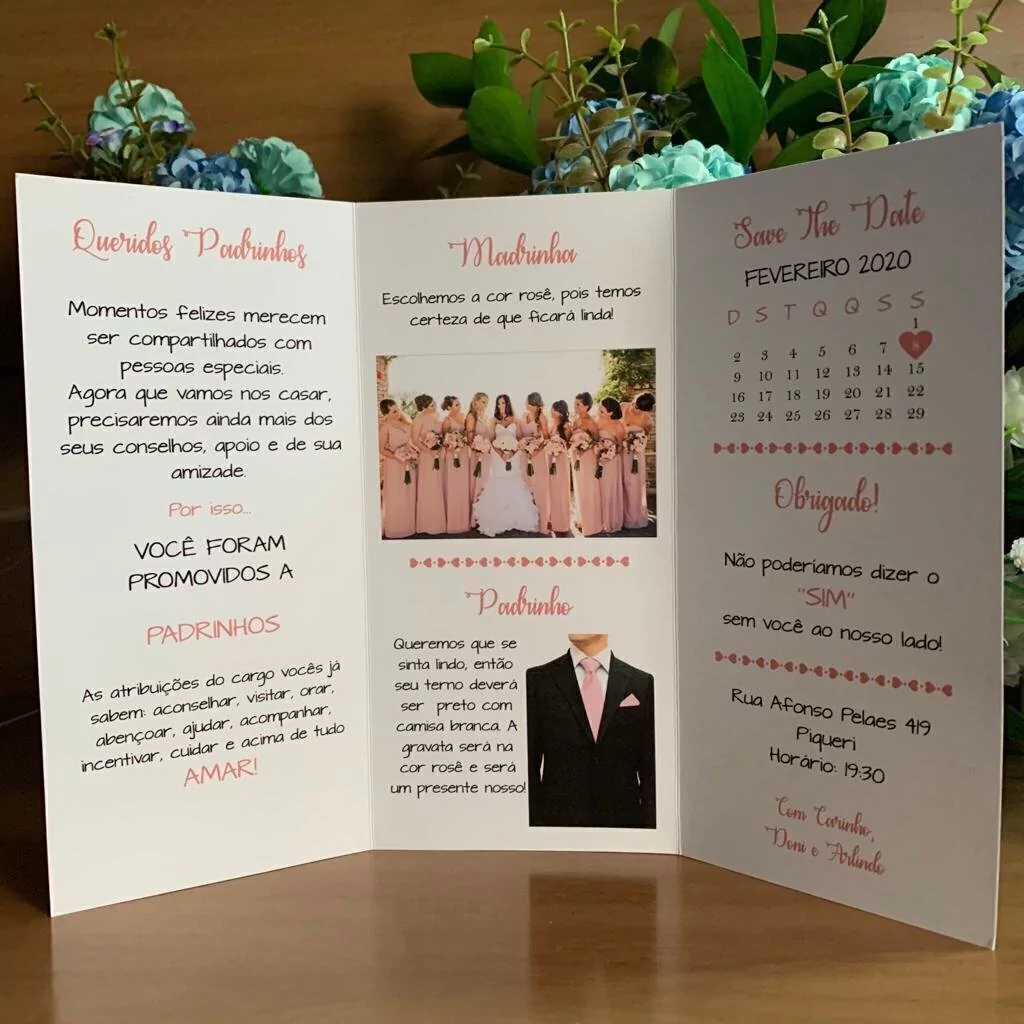 Queridos Padrinhos
Momentos felizes merecem
ser compartilhados com
pessoas especiais.
Agora que vamos nos casar,
precisaremos ainda mais dos
seus conselhos, apoio e de sua
amizade.
Por isso...
VOCÊ FORAM
PROMOVIDOS A
PADRINHOS
As atribuições do cargo vocês já
sabem: aconselhar, visitar, orar,
abençoar, ajudar, acompanhar,
incentivar, cuidar e acima de tudo
AMAR!
Madrinha
Escolhemos a cor rosê, pois temos
certeza de que ficará linda!
Padrinho
Queremos que se
sinta lindo, então
seu terno deverá
ser preto com
camisa branca. A
gravata será na
cor rosê e será
um presente nosso!
Save The Date
FEVEREIRO 2020
D S T Q Q S S
1
2 3 4 5 6 7 8
9 10 11 12 13 14 15
16 17 18 19 20 21 22
23 24 25 26 27 28 29
Obrigado!
Não poderiamos dizer o
"SIM"
sem você ao nosso lado!
Rua Afonso Pelaes 419
Piqueri
Horário: 19:30
Com Carinho,
Doni e Arlindo